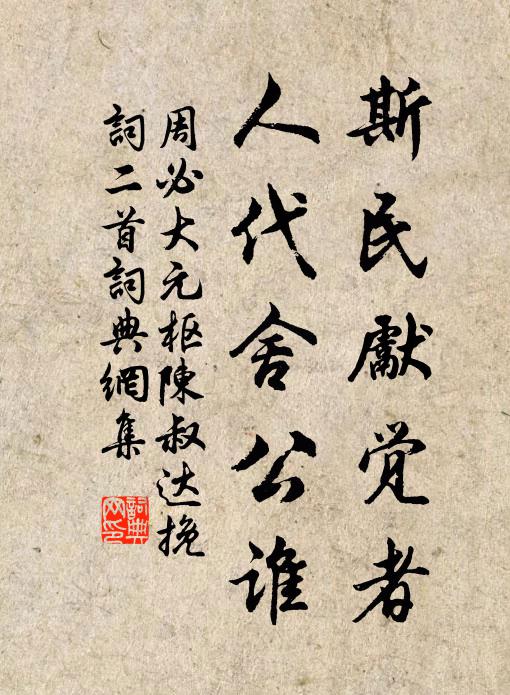 斯民献觉者
人代舍公谁
周必大元枢陳叔达挽
詞二首詞典網集
詞典
网印